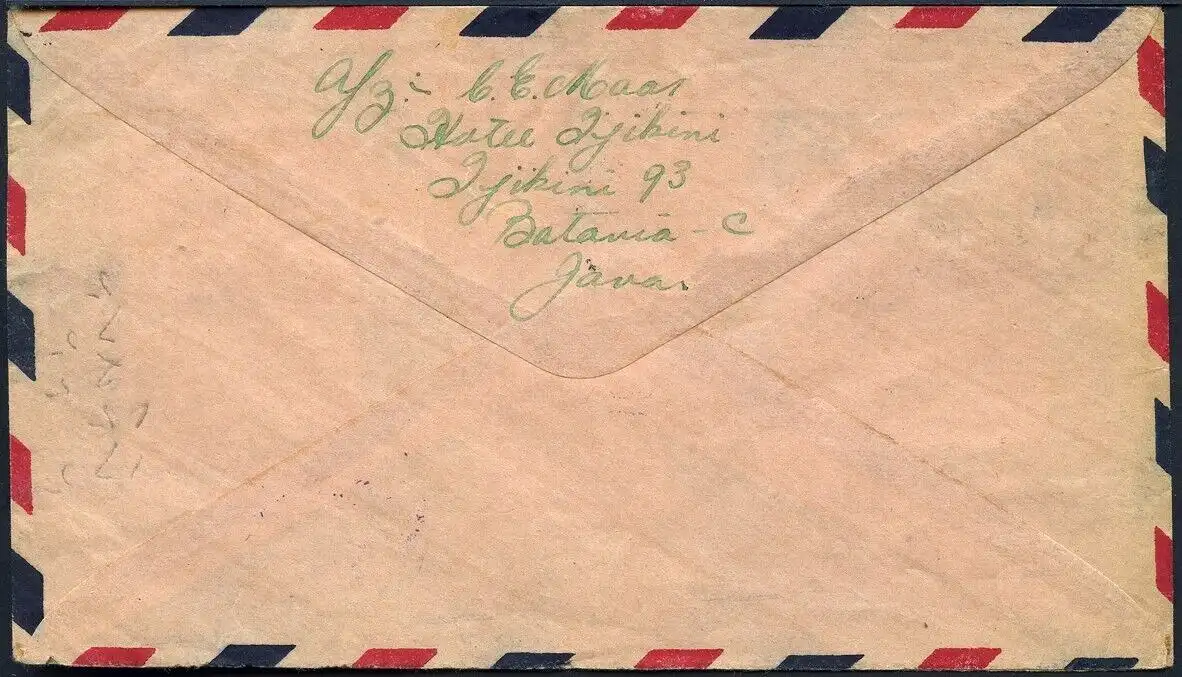 Afz:- C. E. Maas
Hotel Tjikini
Tjikini 93
Batavia - C
Java.